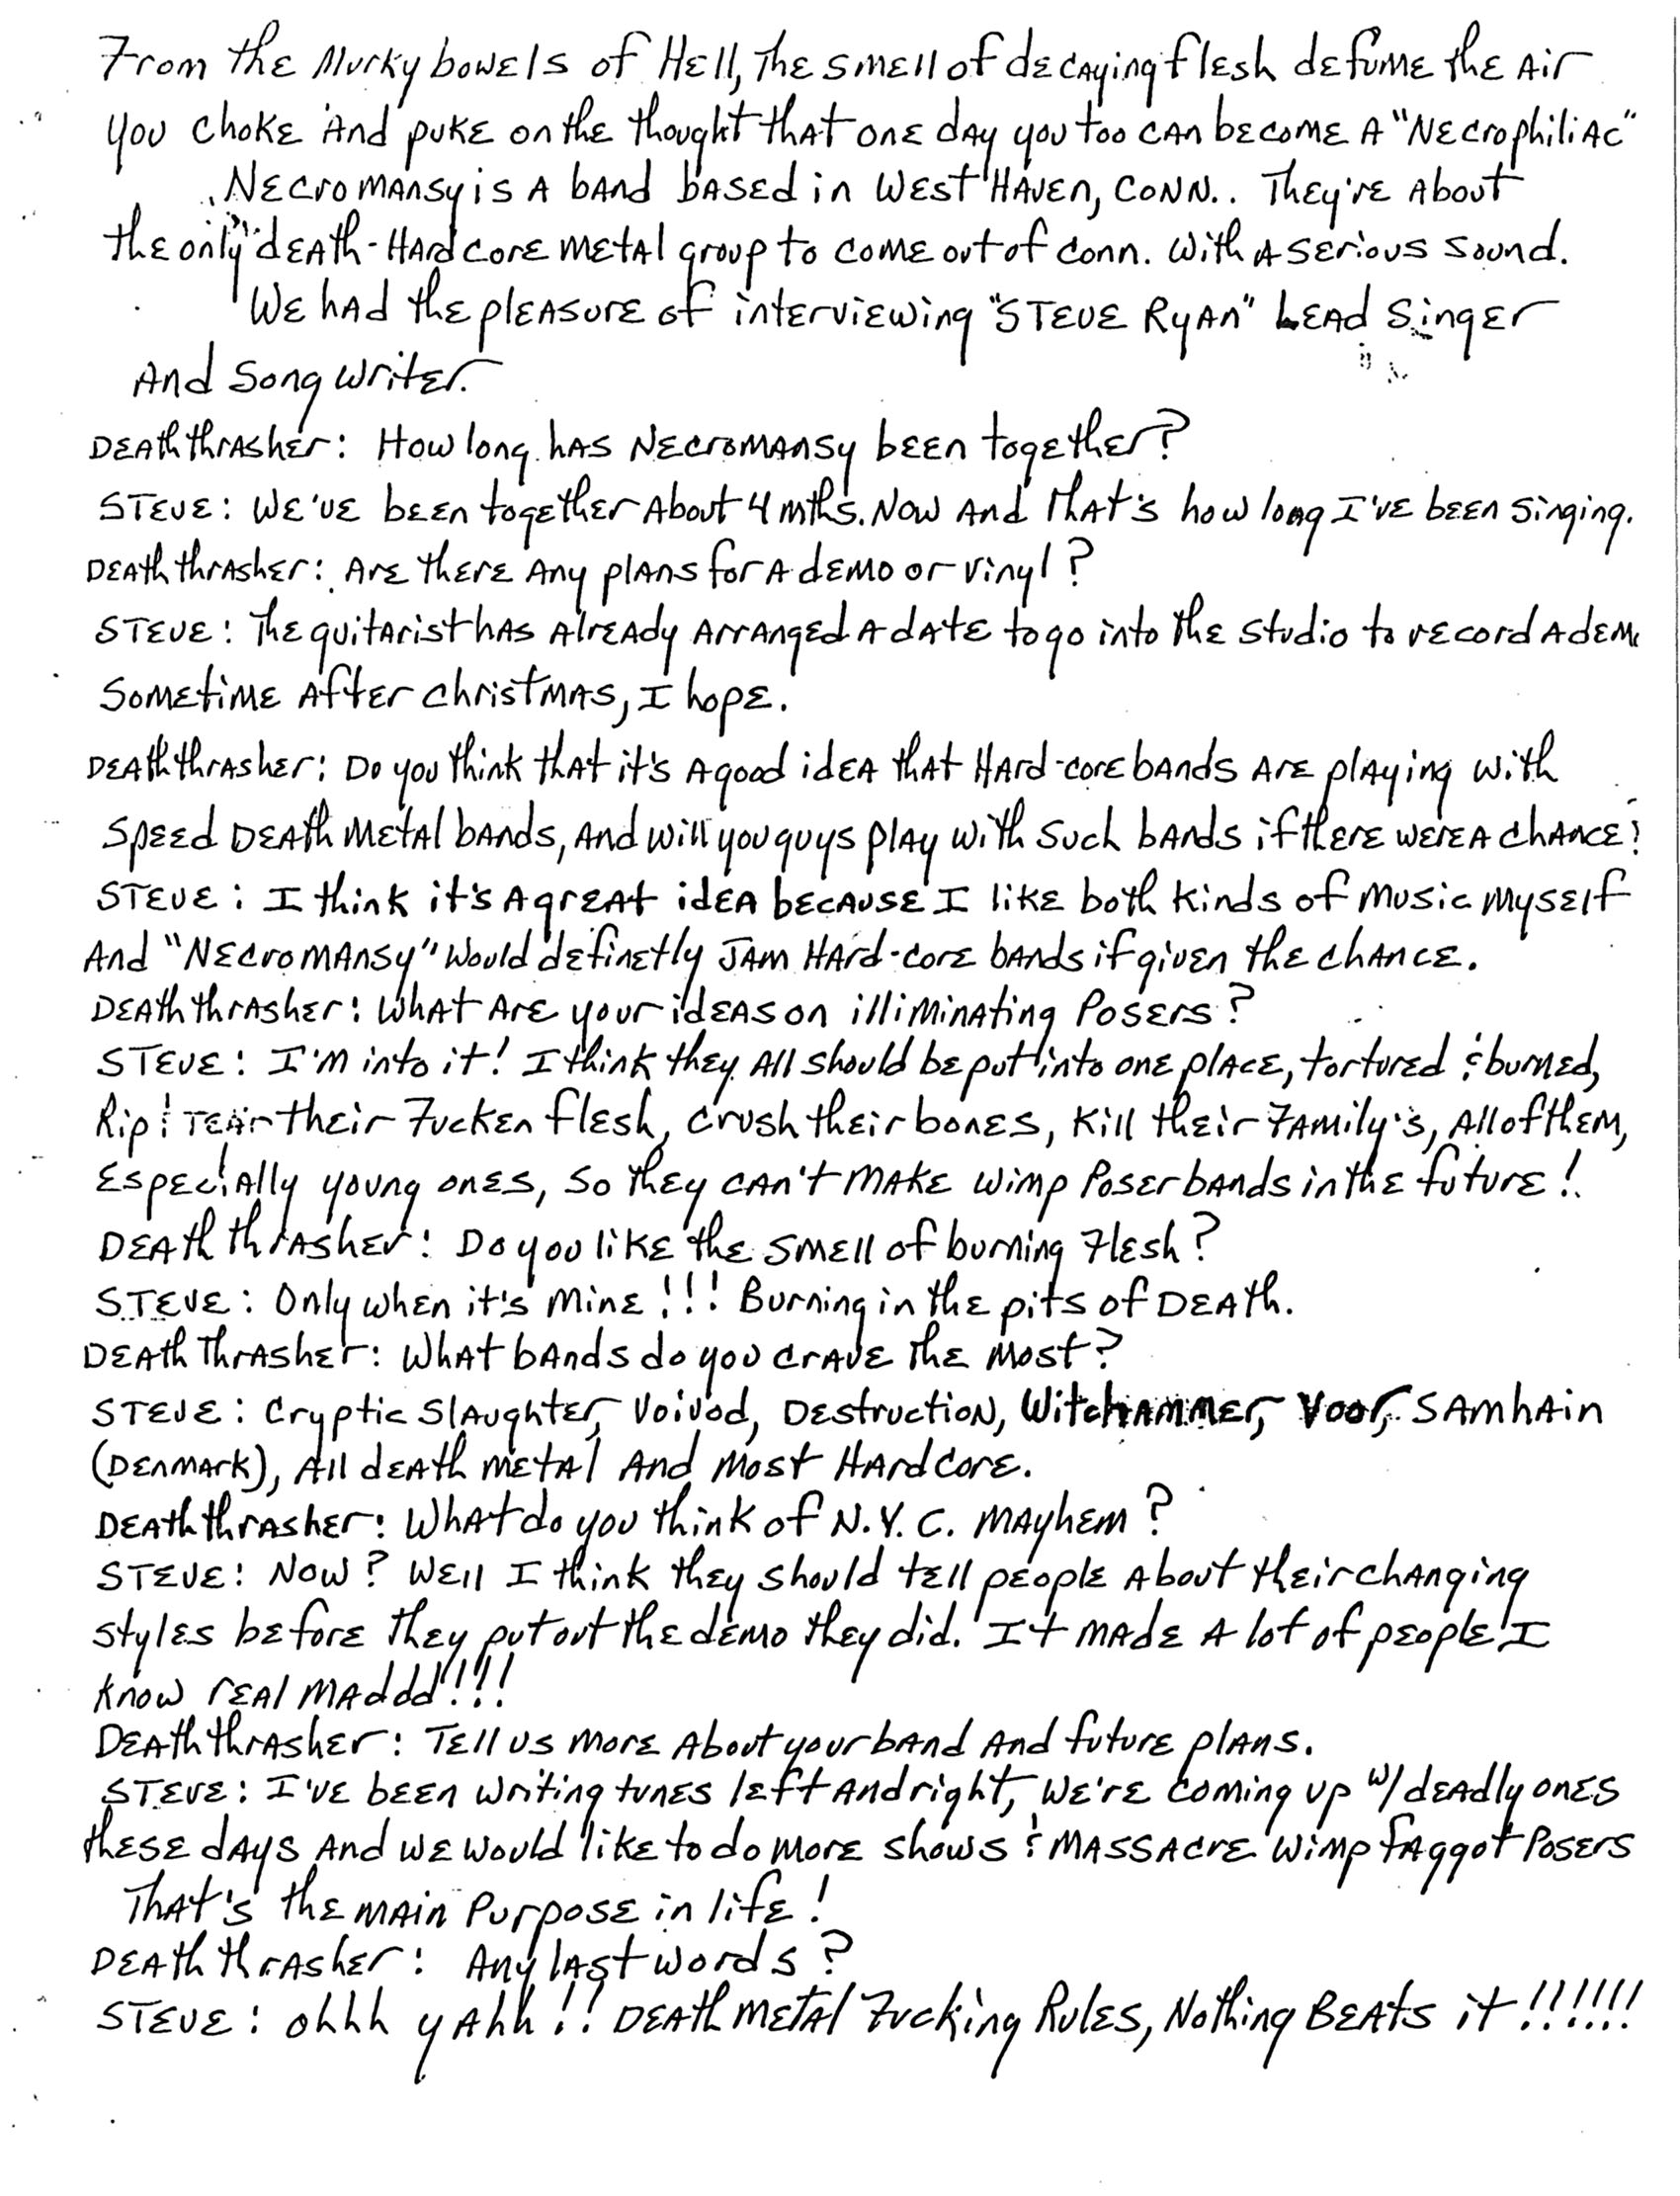 From the Murky bowels of Hell, The smell of decaying flesh defume the Air
you choke And puke on the thought that one day you too can become A "Necrophiliac"
Necromansy is A band based in West Haven, Conn.. They're About
the only death-Hardcore metal group to come out of Conn. with A serious sound.
We had the pleasure of interviewing "STEVE RyAN" Lead Singer
And Song writer.
Deaththrasher: How long has Necromansy been together?
STEVE: We've been together About 4 mths. Now And that's how long I've been singing.
Deaththrasher: Are there Any plans for A demo or vinyl?
STEVE: The guitarist has Already Arranged A date to go into the studio to record A dem
sometime After christmas, I hope.
Deaththrasher: Do you think that it's A good idea that Hard-core bands Are playing with
speed Death Metal bands, And will you guys play with such bands if there were A chance?
STEVE: I think it's A great idea because I like both kinds of Music Myself
And "Necromansy" would definetly JAM Hard-core bands if given the chance.
Deaththrasher: What Are your ideas on illiminating Posers?
STEVE: I'm into it! I think they All should be put into one place, tortured & burned,
Rip & Tear their Fucken flesh, crush their bones, Kill their Family's, All of them,
Especially young ones, so they can't make wimp Poser bands in the future!
Death thrasher: Do you like the smell of burning Flesh?
STEVE: Only when it's Mine!!! Burning in the pits of Death.
Death Thrasher: What bands do you crave the most?
STEVE: Cryptic Slaughter, Voivod, Destruction, Witchammer, Voor, Samhain
(Denmark), All death metal And most Hardcore.
Deaththrasher: What do you think of N.Y.C. Mayhem?
STEVE: Now? Well I think they should tell people About their changing
styles before they put out the demo they did. It made A lot of people I
know real maddd!!!
Deaththrasher: Tell us more About your band And future plans.
STEVE: I've been writing tunes left And right, We're coming up w/ deadly ones
these days And we would like to do more shows & massacre wimp faggot Posers
That's the main Purpose in life!
Death thrasher: Any last words?
STEVE: ohhh yahh!! Death Metal Fucking Rules, Nothing Beats it!!!!!!